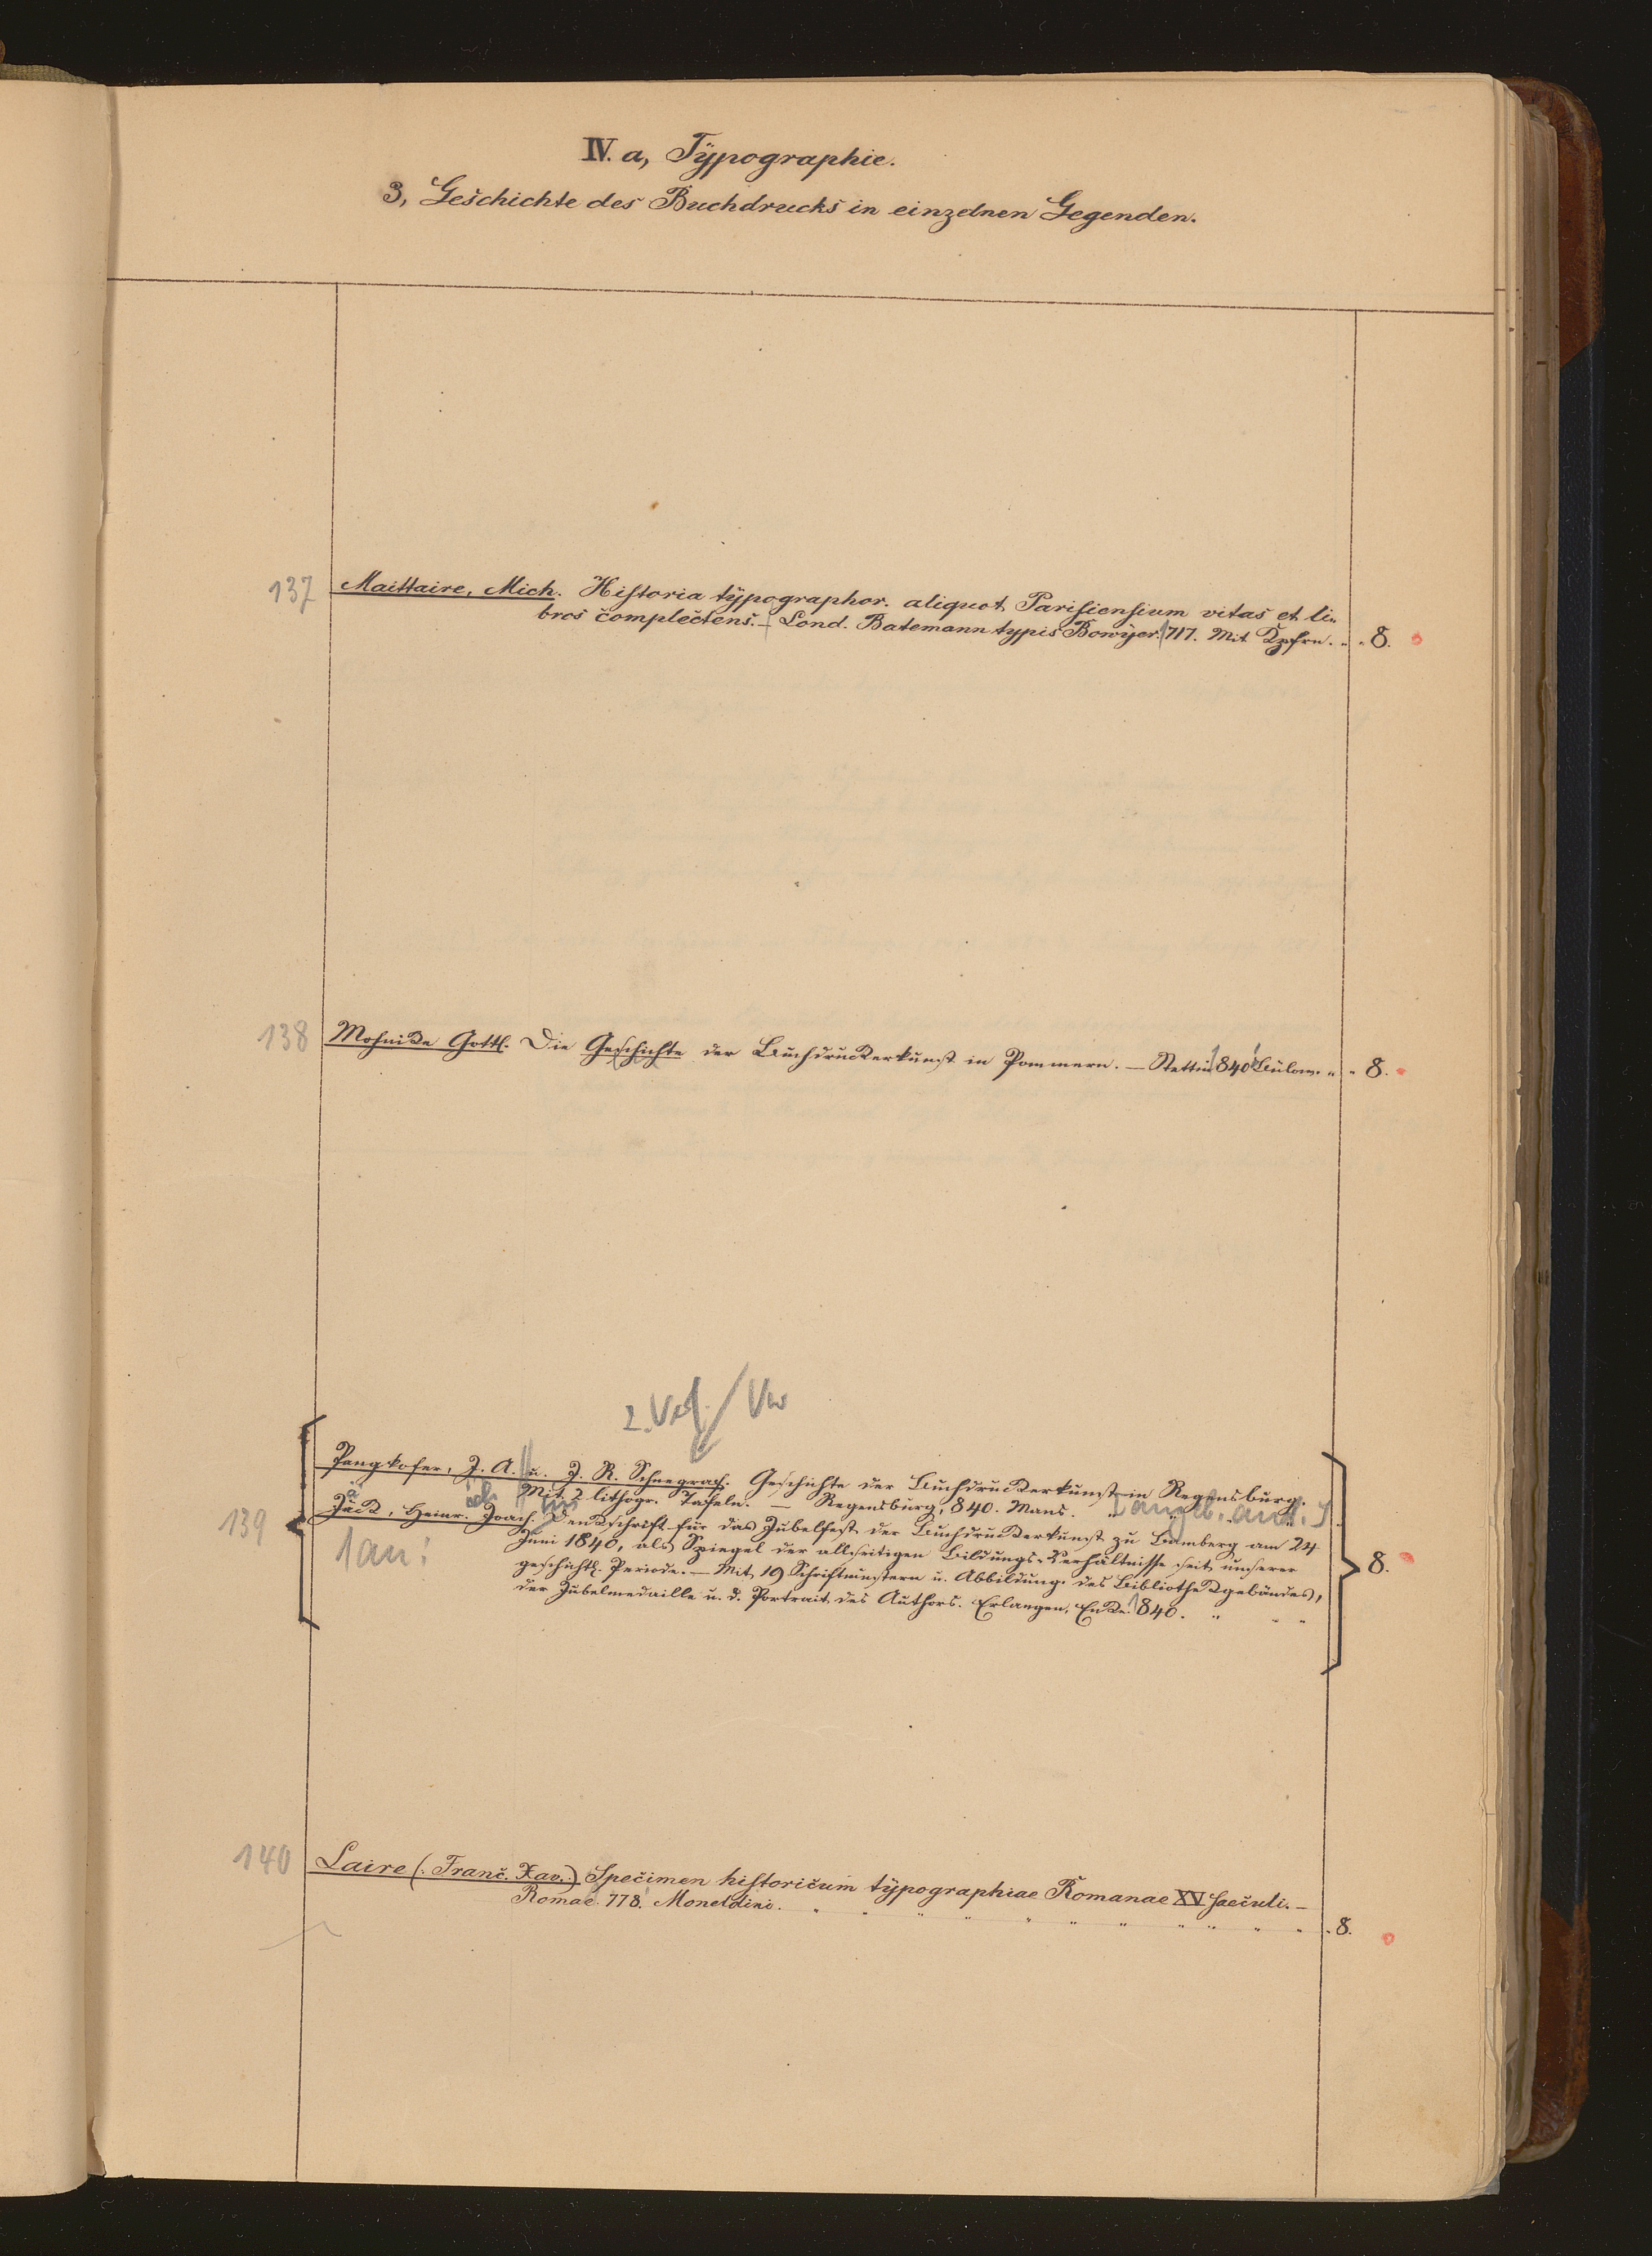 IV. a, Typographie.
3, Geschichte des Buchdrucks in einzelnen Gegenden.
137 Maittaire, Mich. Historia typographor. aliquot Parisiensium vitas et li-
bros complectens. – Lond. Batemann typis Bowyer. 1717. Mit Kpfrn. 8.
138 Mohnike Gottl. Die Geschichte der Buchdruckerkunst in Pommern. – Stettin 1840 Bülow. 8.
2. Verf. / Vw
Pangkofer, J. A. u. J. R. Schuegraf. Geschichte der Buchdruckerkunst in Regensburg.
Mit 2 lithogr. Tafeln. – Regensburg, 840. Manz. [angeb. and.]
139 Jäck, Heinr. Joach. Denkschrift für das Jubelfest der Buchdruckerkunst zu Bamberg am 24
1 an: Juni 1840, als Spiegel der allseitigen Bildungs-Verhältnisse seit unserer
geschichtl. Periode. – Mit 19 Schriftmustern u. Abbildung. des Bibliothekgebäudes, 8.
der Jubelmedaille u. d. Portrait des Authors. Erlangen, Enke. 1840.
140 Laire (: Franc. Xav. :) Specimen historicum typographiae Romanae XV saeculi. –
Romae. 778. Monetdini. 8.